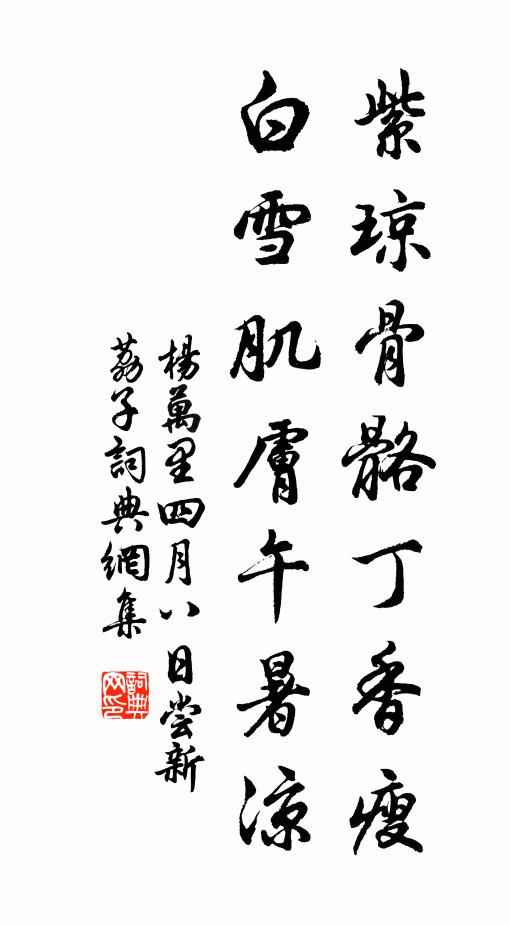 紫琼骨骼丁香瘦
白雪肌膚午暑凉
楊萬里四月八日嘗新
荔子詞典網集
詞典網印